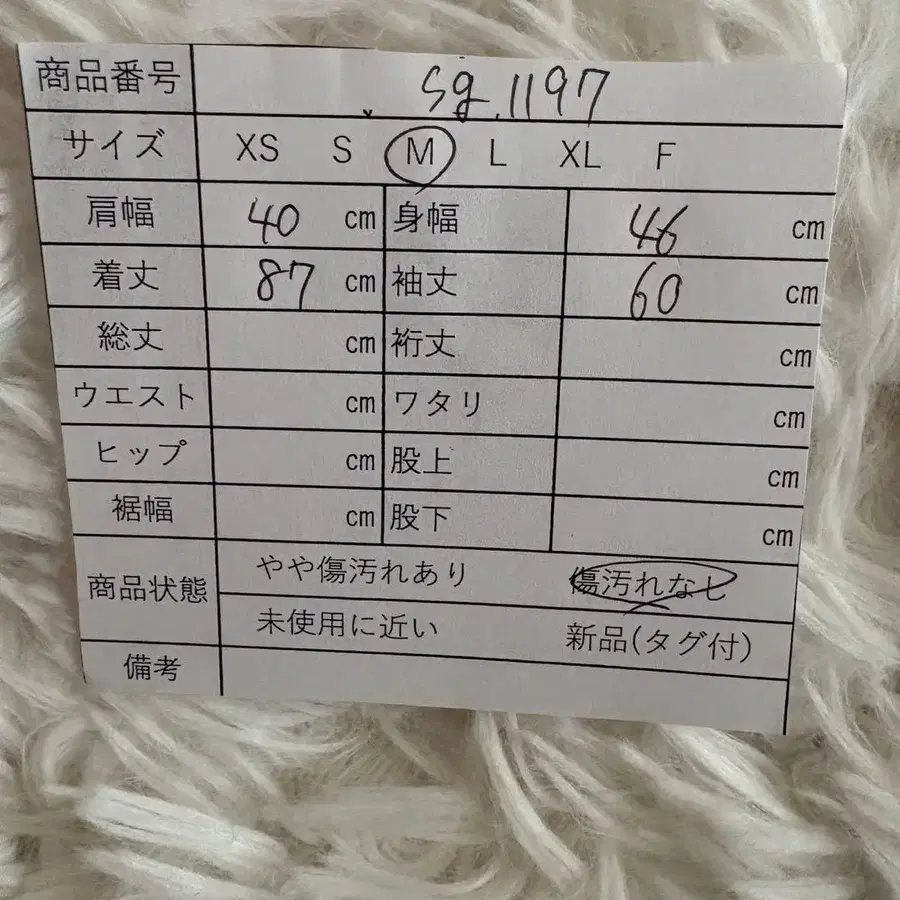 商品番号 sg.1197
サイズ XS S M L XL F
肩幅 40 cm 身幅 46 cm
着丈 87 cm 袖丈 60 cm
総丈 cm 裄丈 cm
ウエスト cm ワタリ cm
ヒップ cm 股上 cm
裾幅 cm 股下 cm
商品状態 やや傷汚れあり 傷汚れなし
未使用に近い 新品(タグ付)
備考